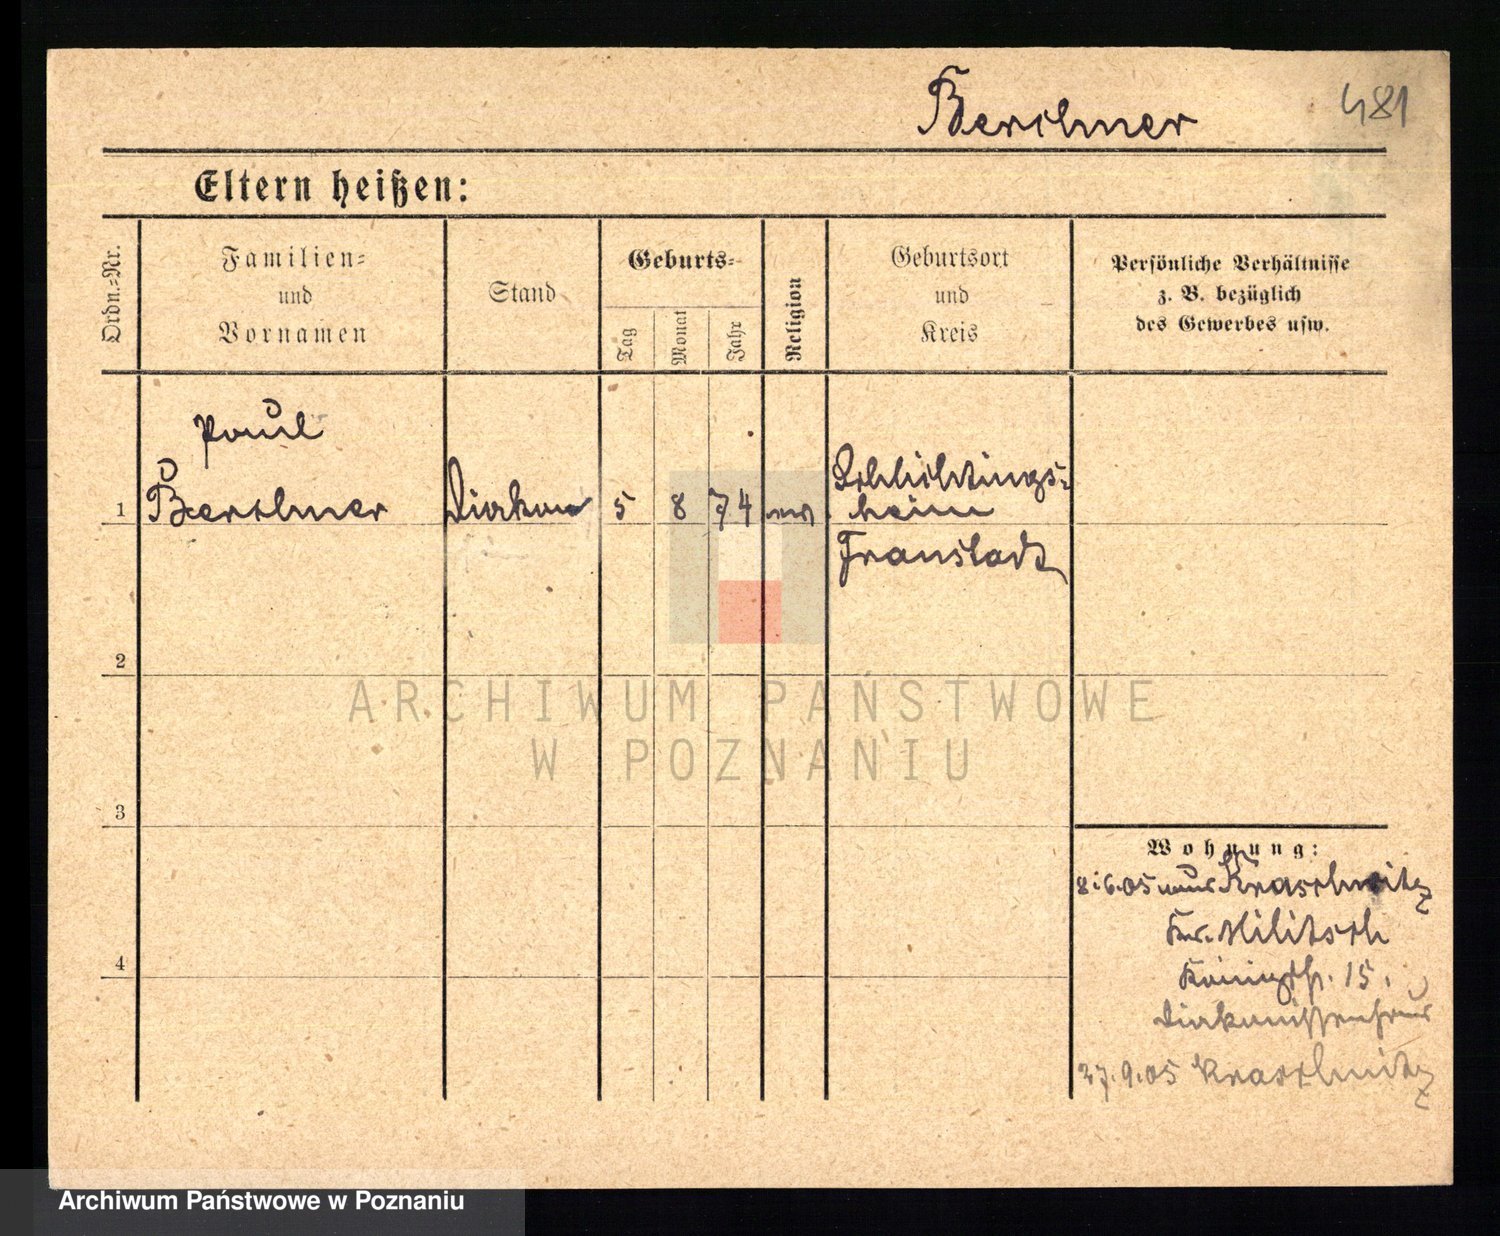 Berschner
481
Eltern heißen:
Ordn.-Nr.
Familien-
und
Vornamen
Stand
Geburts-
Tag
Monat
Jahr
Religion
Geburtsort
und
Kreis
Persönliche Verhältnisse
z. B. bezüglich
des Gewerbes usw.
Paul
1 Berschner Diakon 5 8 74 Schlichtings-
heim
Fraustadt
2
3
4
Wohnung:
8.6.05 Kraschnitz
Kr. Militsch
Königstr. 15.
Diakonissenhaus
27.9.05 Kraschnitz
ARCHIWUM PAŃSTWOWE
W POZNANIU
Archiwum Państwowe w Poznaniu